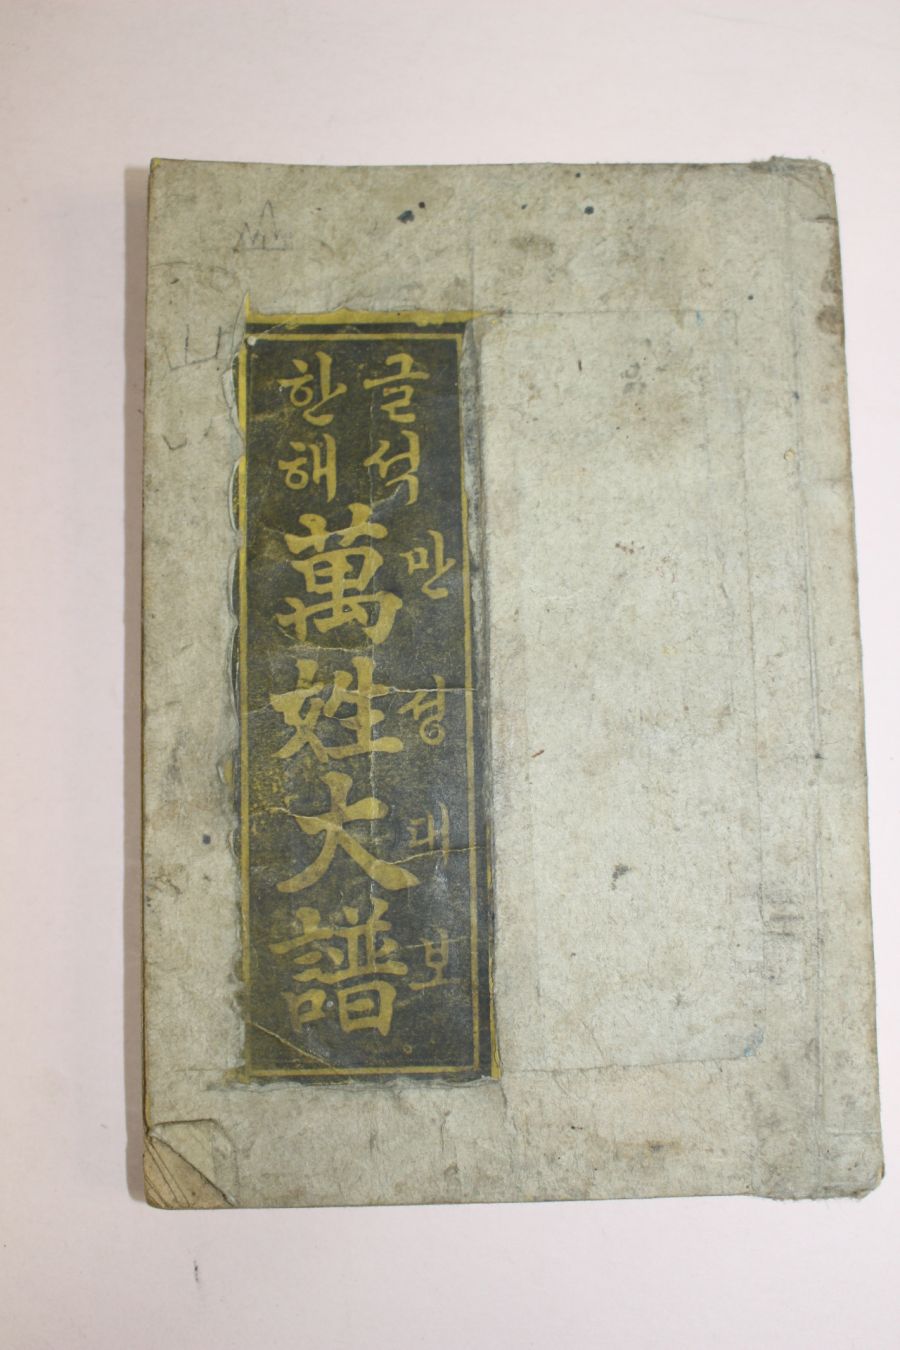 한글
해석
萬姓大譜
만성대보